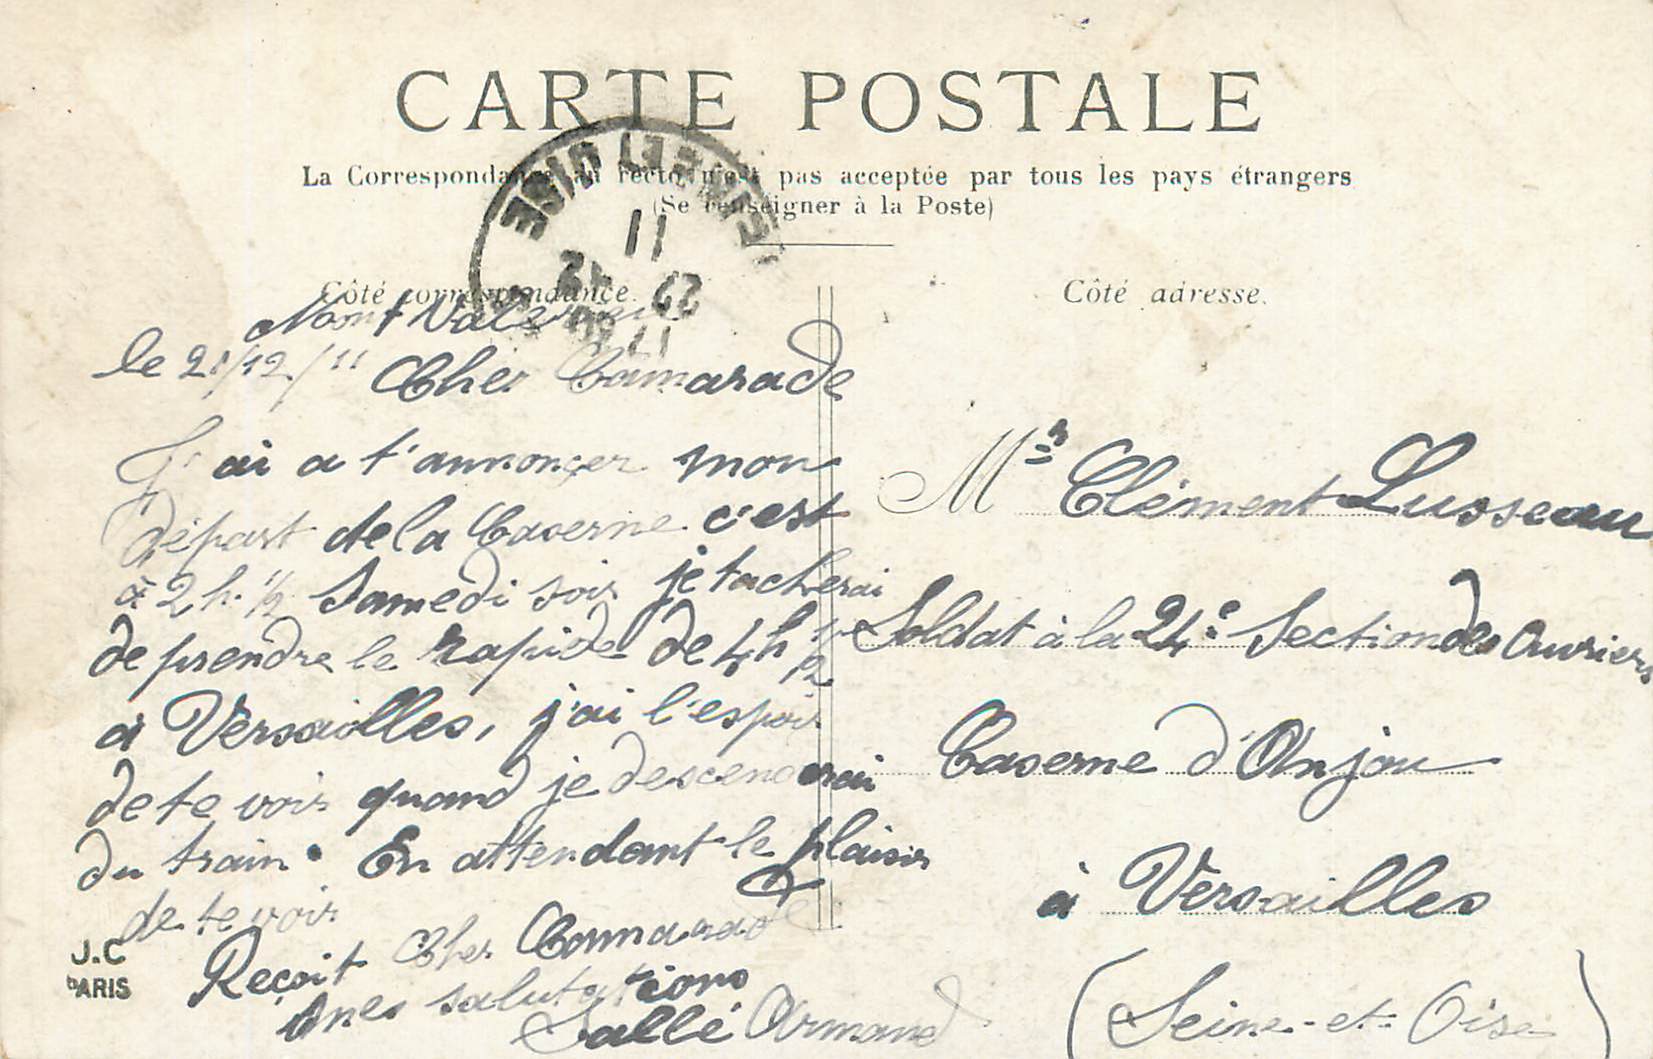 CARTE POSTALE
La Correspondance au recto n'est pas acceptée par tous les pays étrangers
(Se renseigner à la Poste)
Côté correspondance.
Côté adresse.
SEINE ET OISE
11
Mont Valérien
le 21/12/11 Cher Camarade
J'ai a t'annonçer mon
départ de la Caserne c'est
à 2 h. 1/2 Samedi soir je tacherai
de prendre le rapide de 4 h 1/2
à Versailles, j'ai l'espoir
de te voir quand je descenderai
du train. En attendant le plaisir
de te voir
Reçoit Cher Camarade
mes salutations
Sallé Armand
J.C
PARIS
Mr Clément Lusseau
Soldat à la 24e Section des Ouvriers
Caserne d'Anjou
à Versailles
(Seine-et-Oise)